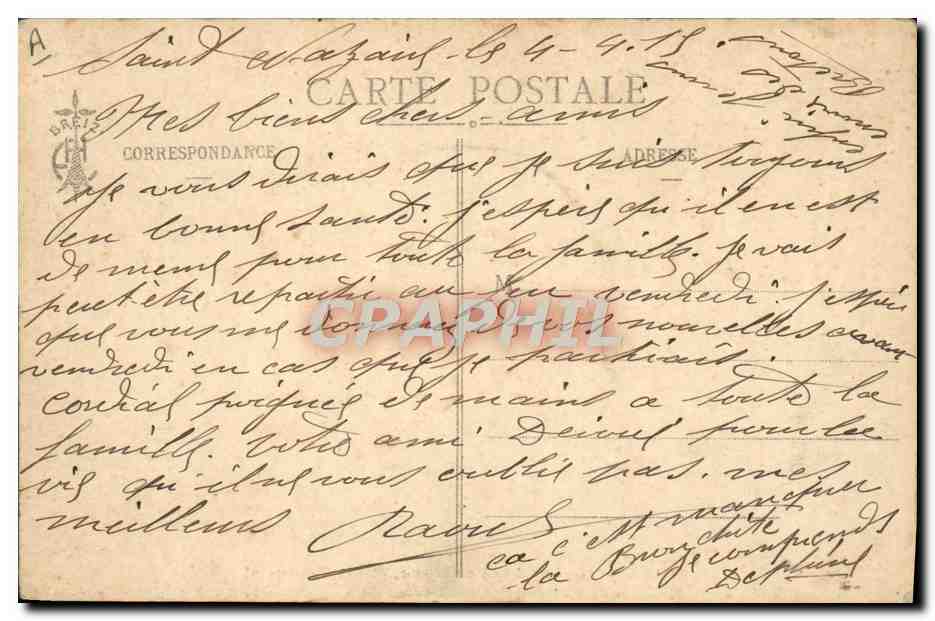 A
Saint Nazaire le 4-4.15
CARTE POSTALE
Mes biens chers amis
BREIZ
CORRESPONDANCE
ADRESSE
Je vous dirais que je suis toujours
en bonne santé. j'espère qu'il en est
de meme pour toute la famille. Je vais
peut être repartir au feu vendredi. j'espère
M
CPAPHIL
que vous me donnerez de vos nouvelles avant
vendredi en cas que je partirais.
Cordial poignée de mains a toute la
famille. votre ami Dévoué pour la
vie qu'il ne vous oublie pas. mes
meilleurs
Raoul
ca c'est manquer
la Bronchite
Je comprends
De plume